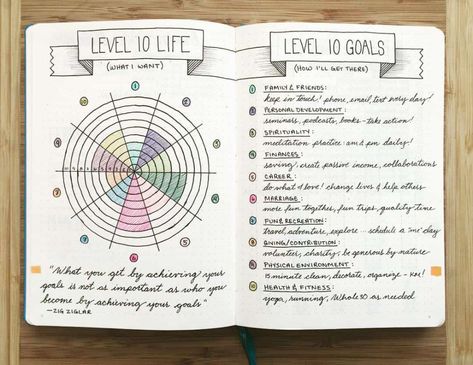 LEVEL 10 LIFE
(WHAT I WANT)
"What you get by achieving your
goals is not as important as who you
become by achieving your goals."
—ZIG ZIGLAR
LEVEL 10 GOALS
(HOW I'LL GET THERE)
1 FAMILY & FRIENDS:
keep in touch! phone, email, text every day!
2 PERSONAL DEVELOPMENT:
seminars, podcasts, books - take action!
3 SPIRITUALITY:
meditation practice: am & pm daily!
4 FINANCES:
saving! create passive income, collaborations
5 CAREER:
do what I love! change lives & help others
6 MARRIAGE:
more fun together, fun trips, quality time
7 FUN & RECREATION:
travel, adventure, explore... schedule a "me" day
8 GIVING/CONTRIBUTION:
volunteer, charity; be generous by nature
9 PHYSICAL ENVIRONMENT:
15 minute clean, decorate, organize -
10 HEALTH & FITNESS:
yoga, running, Whole30 as needed